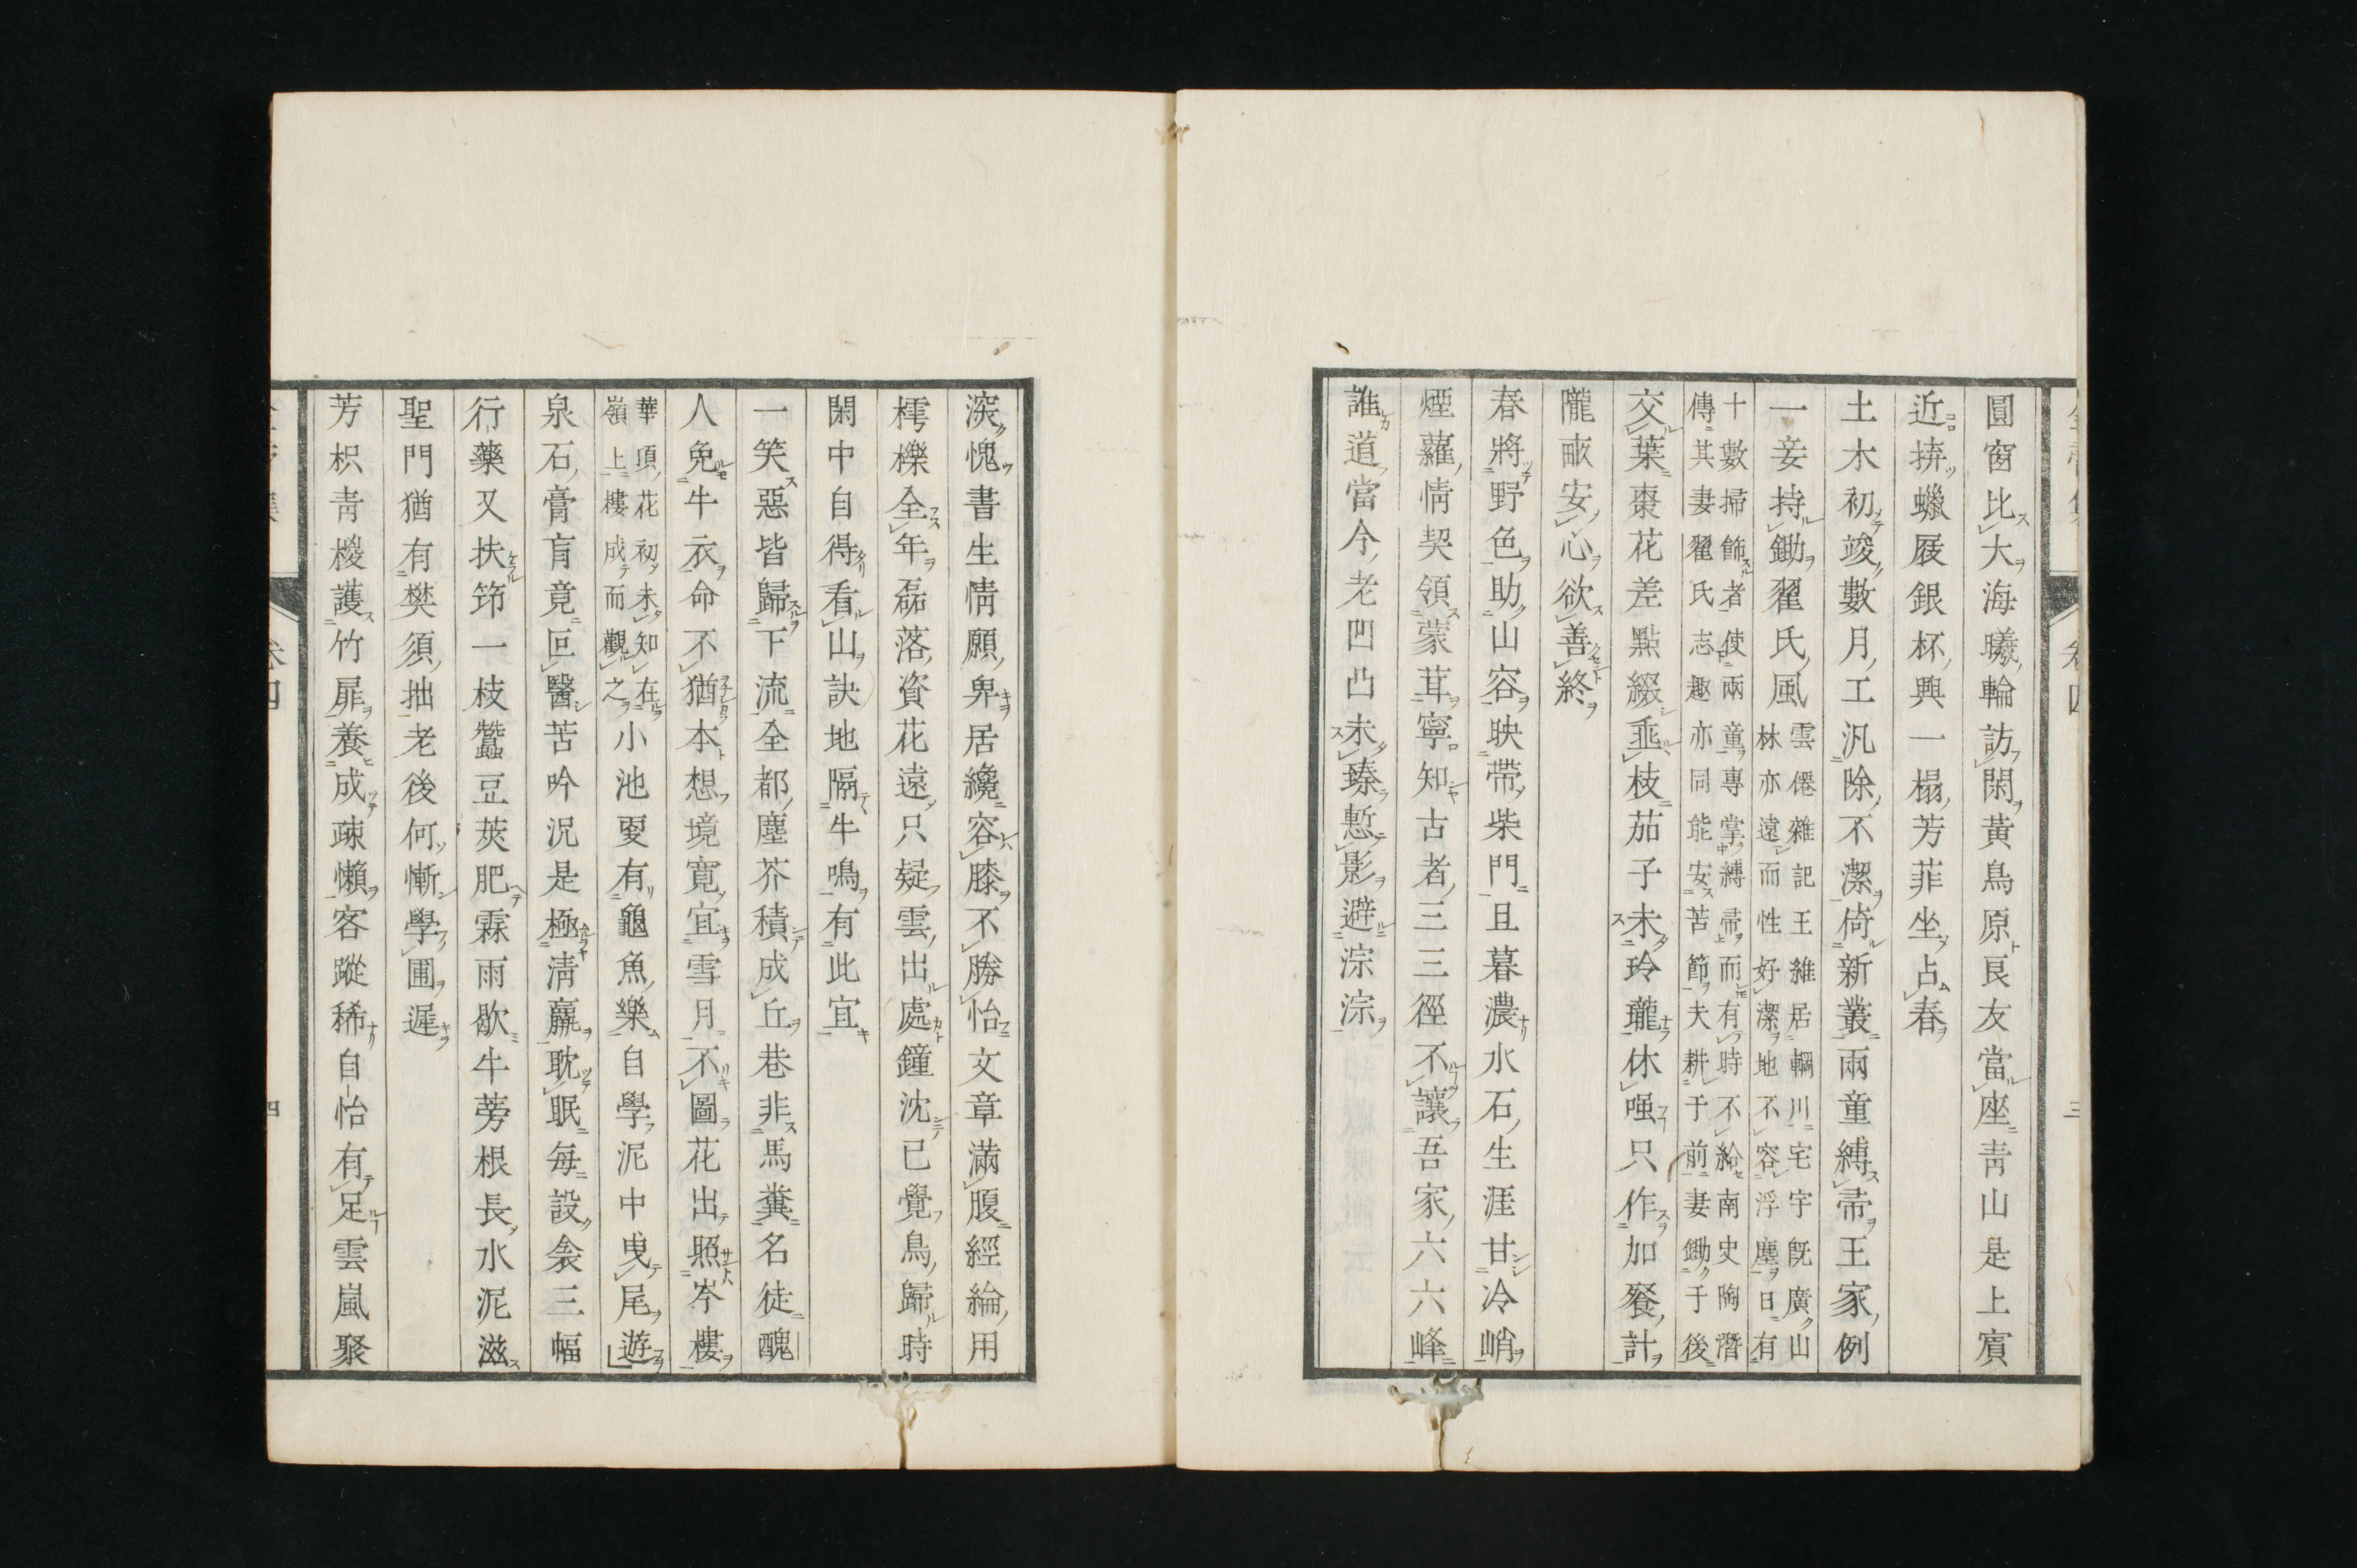 圓窗比大海曦輪訪閑黃鳥原良友當座靑山是上賓
近捹蠟屐銀杯興一榻芳菲坐占春
土木初竣數月工汎除不潔倚新叢兩童縛帚王家例
一妾持鋤翟氏風雲僊雜記王維居輞川宅宇旣廣山
林亦遠而性好潔地不容浮塵日有
十數掃飾者使兩童專掌縛帚而有時不給南史陶潛
傳其妻翟氏志趣亦同能安苦節夫耕于前妻鋤于後
交葉棗花差點綴垂枝茄子未玲瓏休嗤只作加餐計
隴畝安心欲善終
春將野色助山容映帶柴門且暮濃水石生涯甘冷峭
煙蘿情契領蒙茸寧知古者三三徑不讓吾家六六峰
誰道當今老凹凸未臻慙影避淙淙
深愧書生情願卑居纔容膝不勝怡文章滿腹經綸用
樗櫟全年磊落資花遠只疑雲出處鐘沈已覺鳥歸時
閑中自得看山訣地隔牛鳴有此宜
一笑惡皆歸下流全都塵芥積成丘巷非馬糞名徒醜
人免牛衣命不猶本想境寬宜雪月不圖花出照岑樓
華頂花初未知在
嶺上樓成而觀之小池更有龜魚樂自學泥中曳尾遊
泉石膏肓竟叵醫苦吟況是極淸羸耽眠每設衾三幅
行藥又扶笻一枝蠶豆莢肥霖雨歇牛蒡根長水泥滋
聖門猶有樊須拙老後何慚學圃遲
芳枳靑椶護竹扉養成疎懶客蹤稀自怡有足雲嵐聚
卷四
三
四